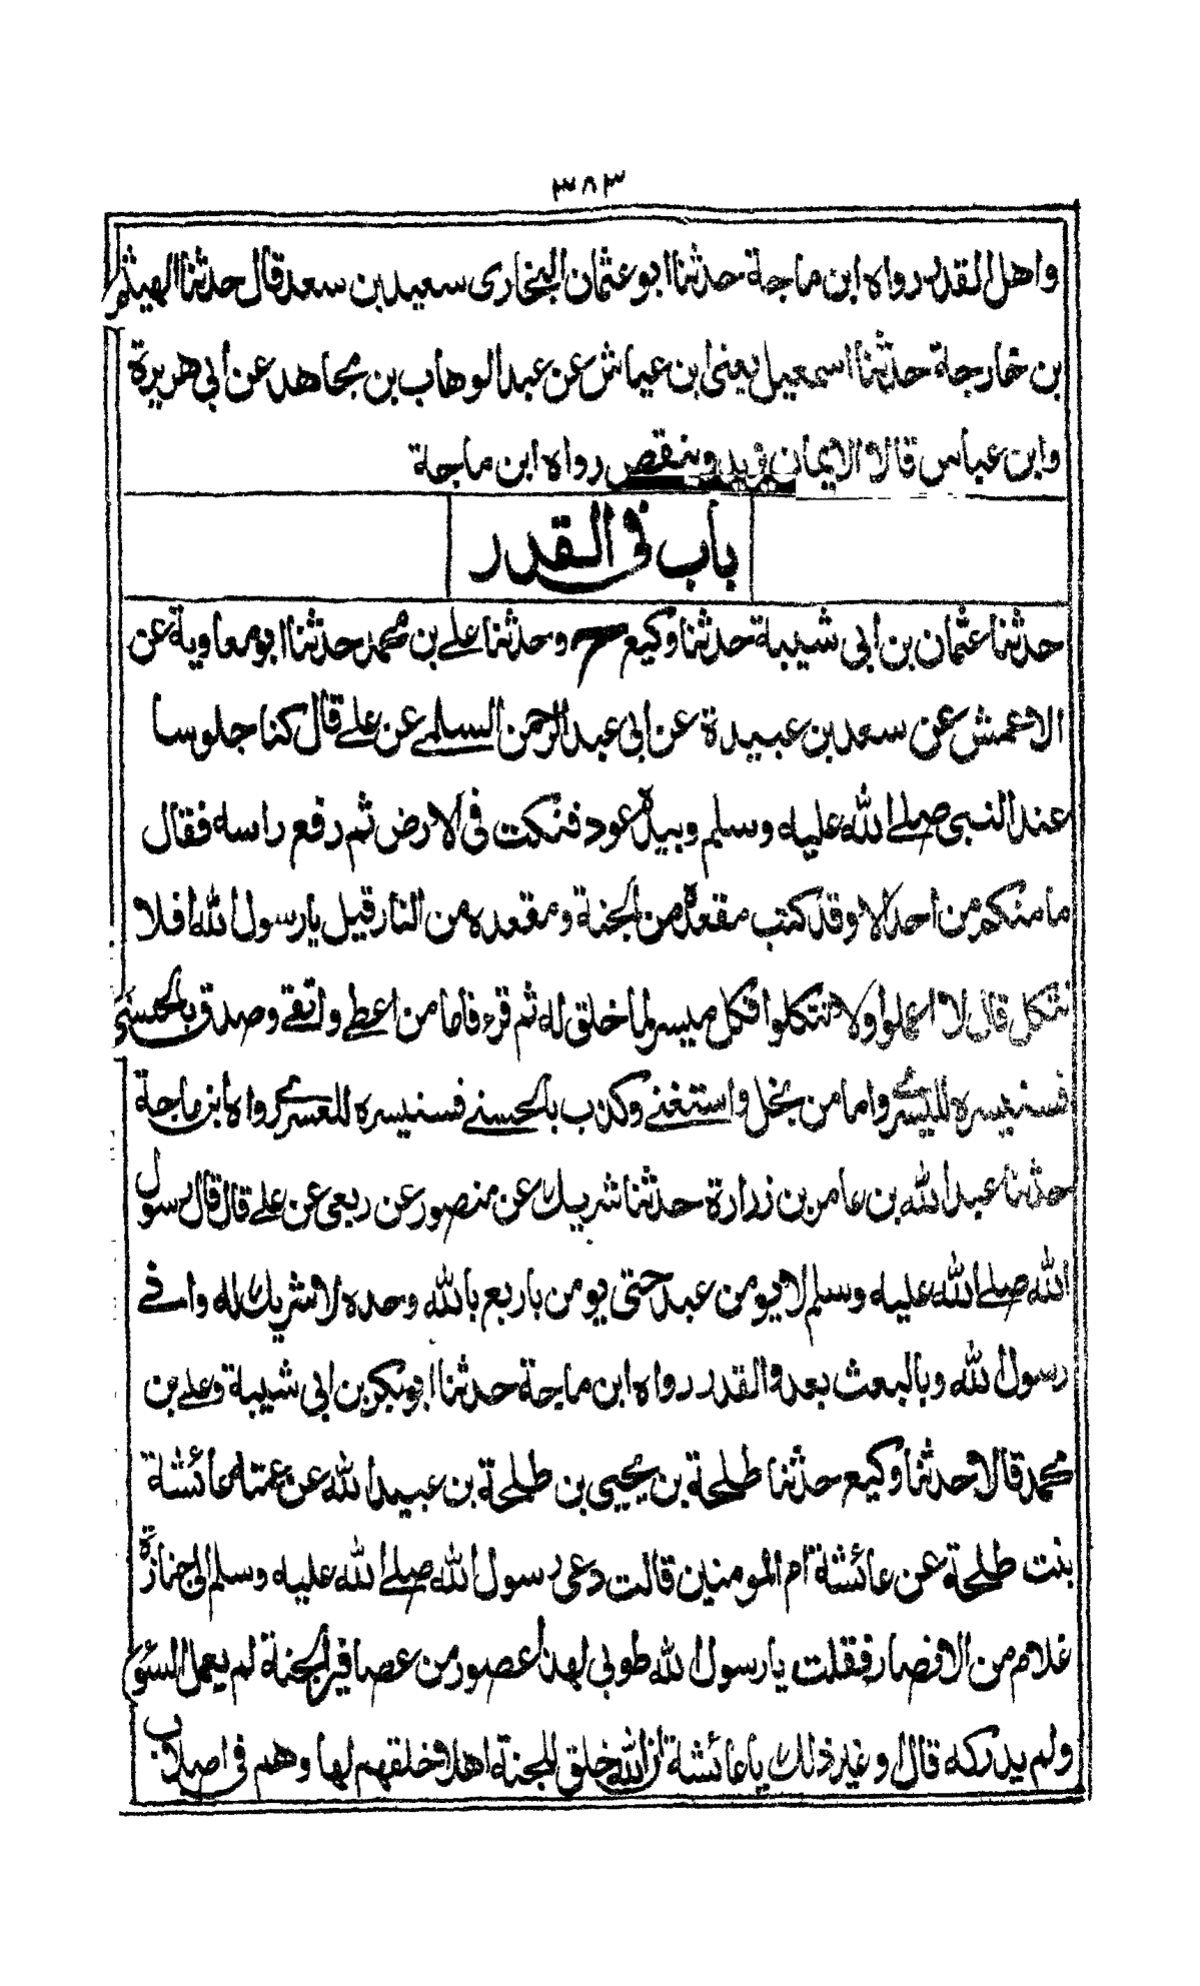 ٣٨٣
واهل القدر رواه ابن ماجة حدثنا ابو عثمان البخارى سعيد بن سعد قال حدثنا الهيثم
بن خارجة حدثنا اسمعيل يعنى ابن عياش عن عبد الوهاب بن مجاهد عن ابي هريرة
وابن عباس قالا الايمان يزيد وينقص رواه ابن ماجة
باب في القدر
حدثنا عثمان بن ابي شيبة حدثنا وكيع ح وحدثنا علي بن محمد حدثنا ابو معاوية عن
الاعمش عن سعد بن عبيدة عن ابي عبد الرحمن السلمي عن علي قال كنا جلوسا
عند النبي صلى الله عليه وسلم وبيده عود فنكت في الارض ثم رفع راسه فقال
ما منكم من احد الا وقد كتب مقعده من الجنة ومقعده من النار قيل يا رسول الله افلا
نتكل قال لا اعملوا ولا تتكلوا فكل ميسر لما خلق له ثم قرء فاما من اعطى واتقى وصدق بالحسنى
فسنيسره لليسرى واما من بخل واستغنى وكذب بالحسنى فسنيسره للعسرى رواه ابن ماجة
حدثنا عبد الله بن عامر بن زرارة حدثنا شريك عن منصور عن ربعي عن علي قال قال رسول
الله صلى الله عليه وسلم لا يومن عبد حتى يومن باربع بالله وحده لا شريك له وانى
رسول الله وبالبعث بعده والقدر رواه ابن ماجة حدثنا ابو بكر بن ابي شيبة وعلي بن
محمد قالا حدثنا وكيع حدثنا طلحة بن يحيى بن طلحة بن عبيد الله عن عمته عائشة
بنت طلحة عن عائشة ام المومنين قالت دعى رسول الله صلى الله عليه وسلم الى جنازة
غلام من الانصار فقلت يا رسول الله طوبى لهذا عصفور من عصافير الجنة لم يعمل السوء
ولم يدركه قال وغير ذلك يا عائشة ان الله خلق للجنة اهلا خلقهم لها وهم في اصلاب